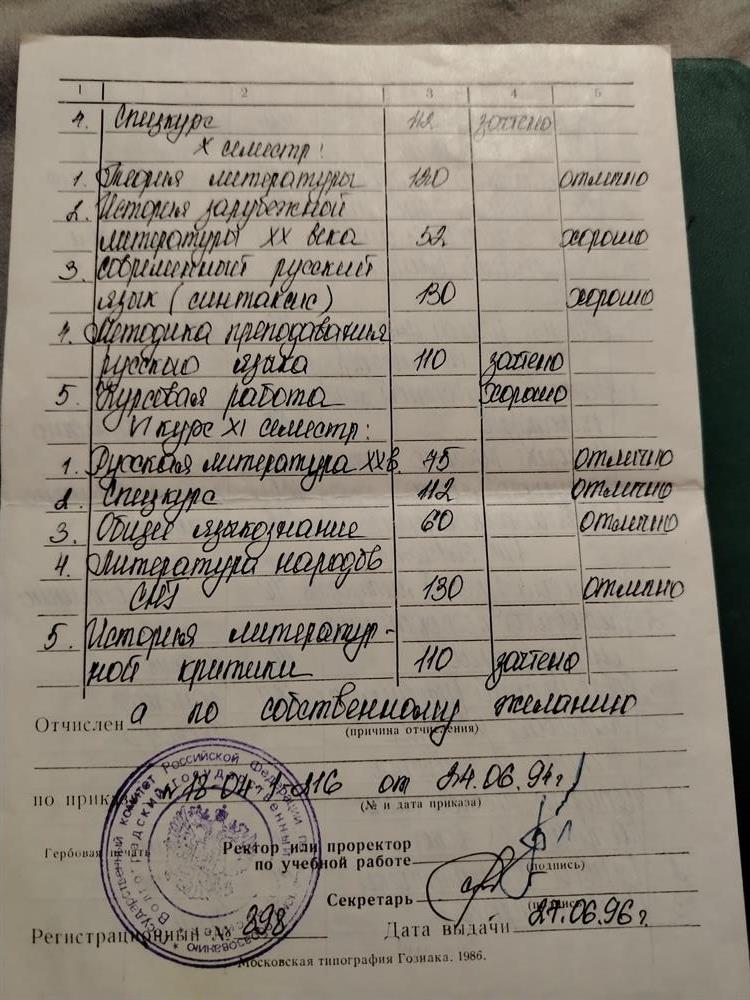 1 2 3 4 5
4. Спецкурс 112 зачтено
X семестр:
1. Теория литературы 120 отлично
2. История зарубежной
литературы XX века 52 хорошо
3. Современный русский
язык (синтаксис) 130 хорошо
4. Методика преподавания
русского языка 110 зачтено
5. Курсовая работа хорошо
VI курс XI семестр:
1. Русская литература XX в. 75 отлично
2. Спецкурс 112 отлично
3. Общее языкознание 60 отлично
4. Литература народов
СНГ 130 отлично
5. История литератур-
ной критики 110 зачтено
Отчислен а по собственному желанию
(причина отчисления)
по от 24.06.94г
(№ и дата приказа)
Гербовая печать
Ректор или проректор
по учебной работе
(подпись)
Секретарь
Регистрационный № 298 Дата выдачи 27.06.96г.
Московская типография Гознака. 1986.
Государственный комитет Российской Федерации